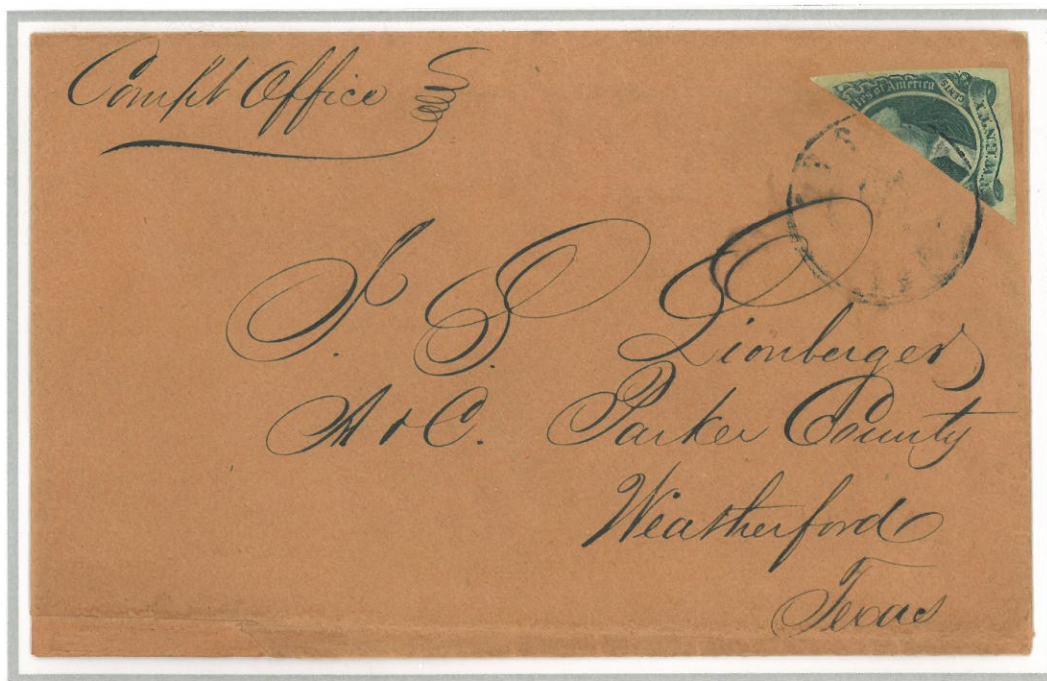 Compt Office
J. S. Lionberger
A & C. Parker County
Weatherford
Texas
of America
CENTS
TWENTY